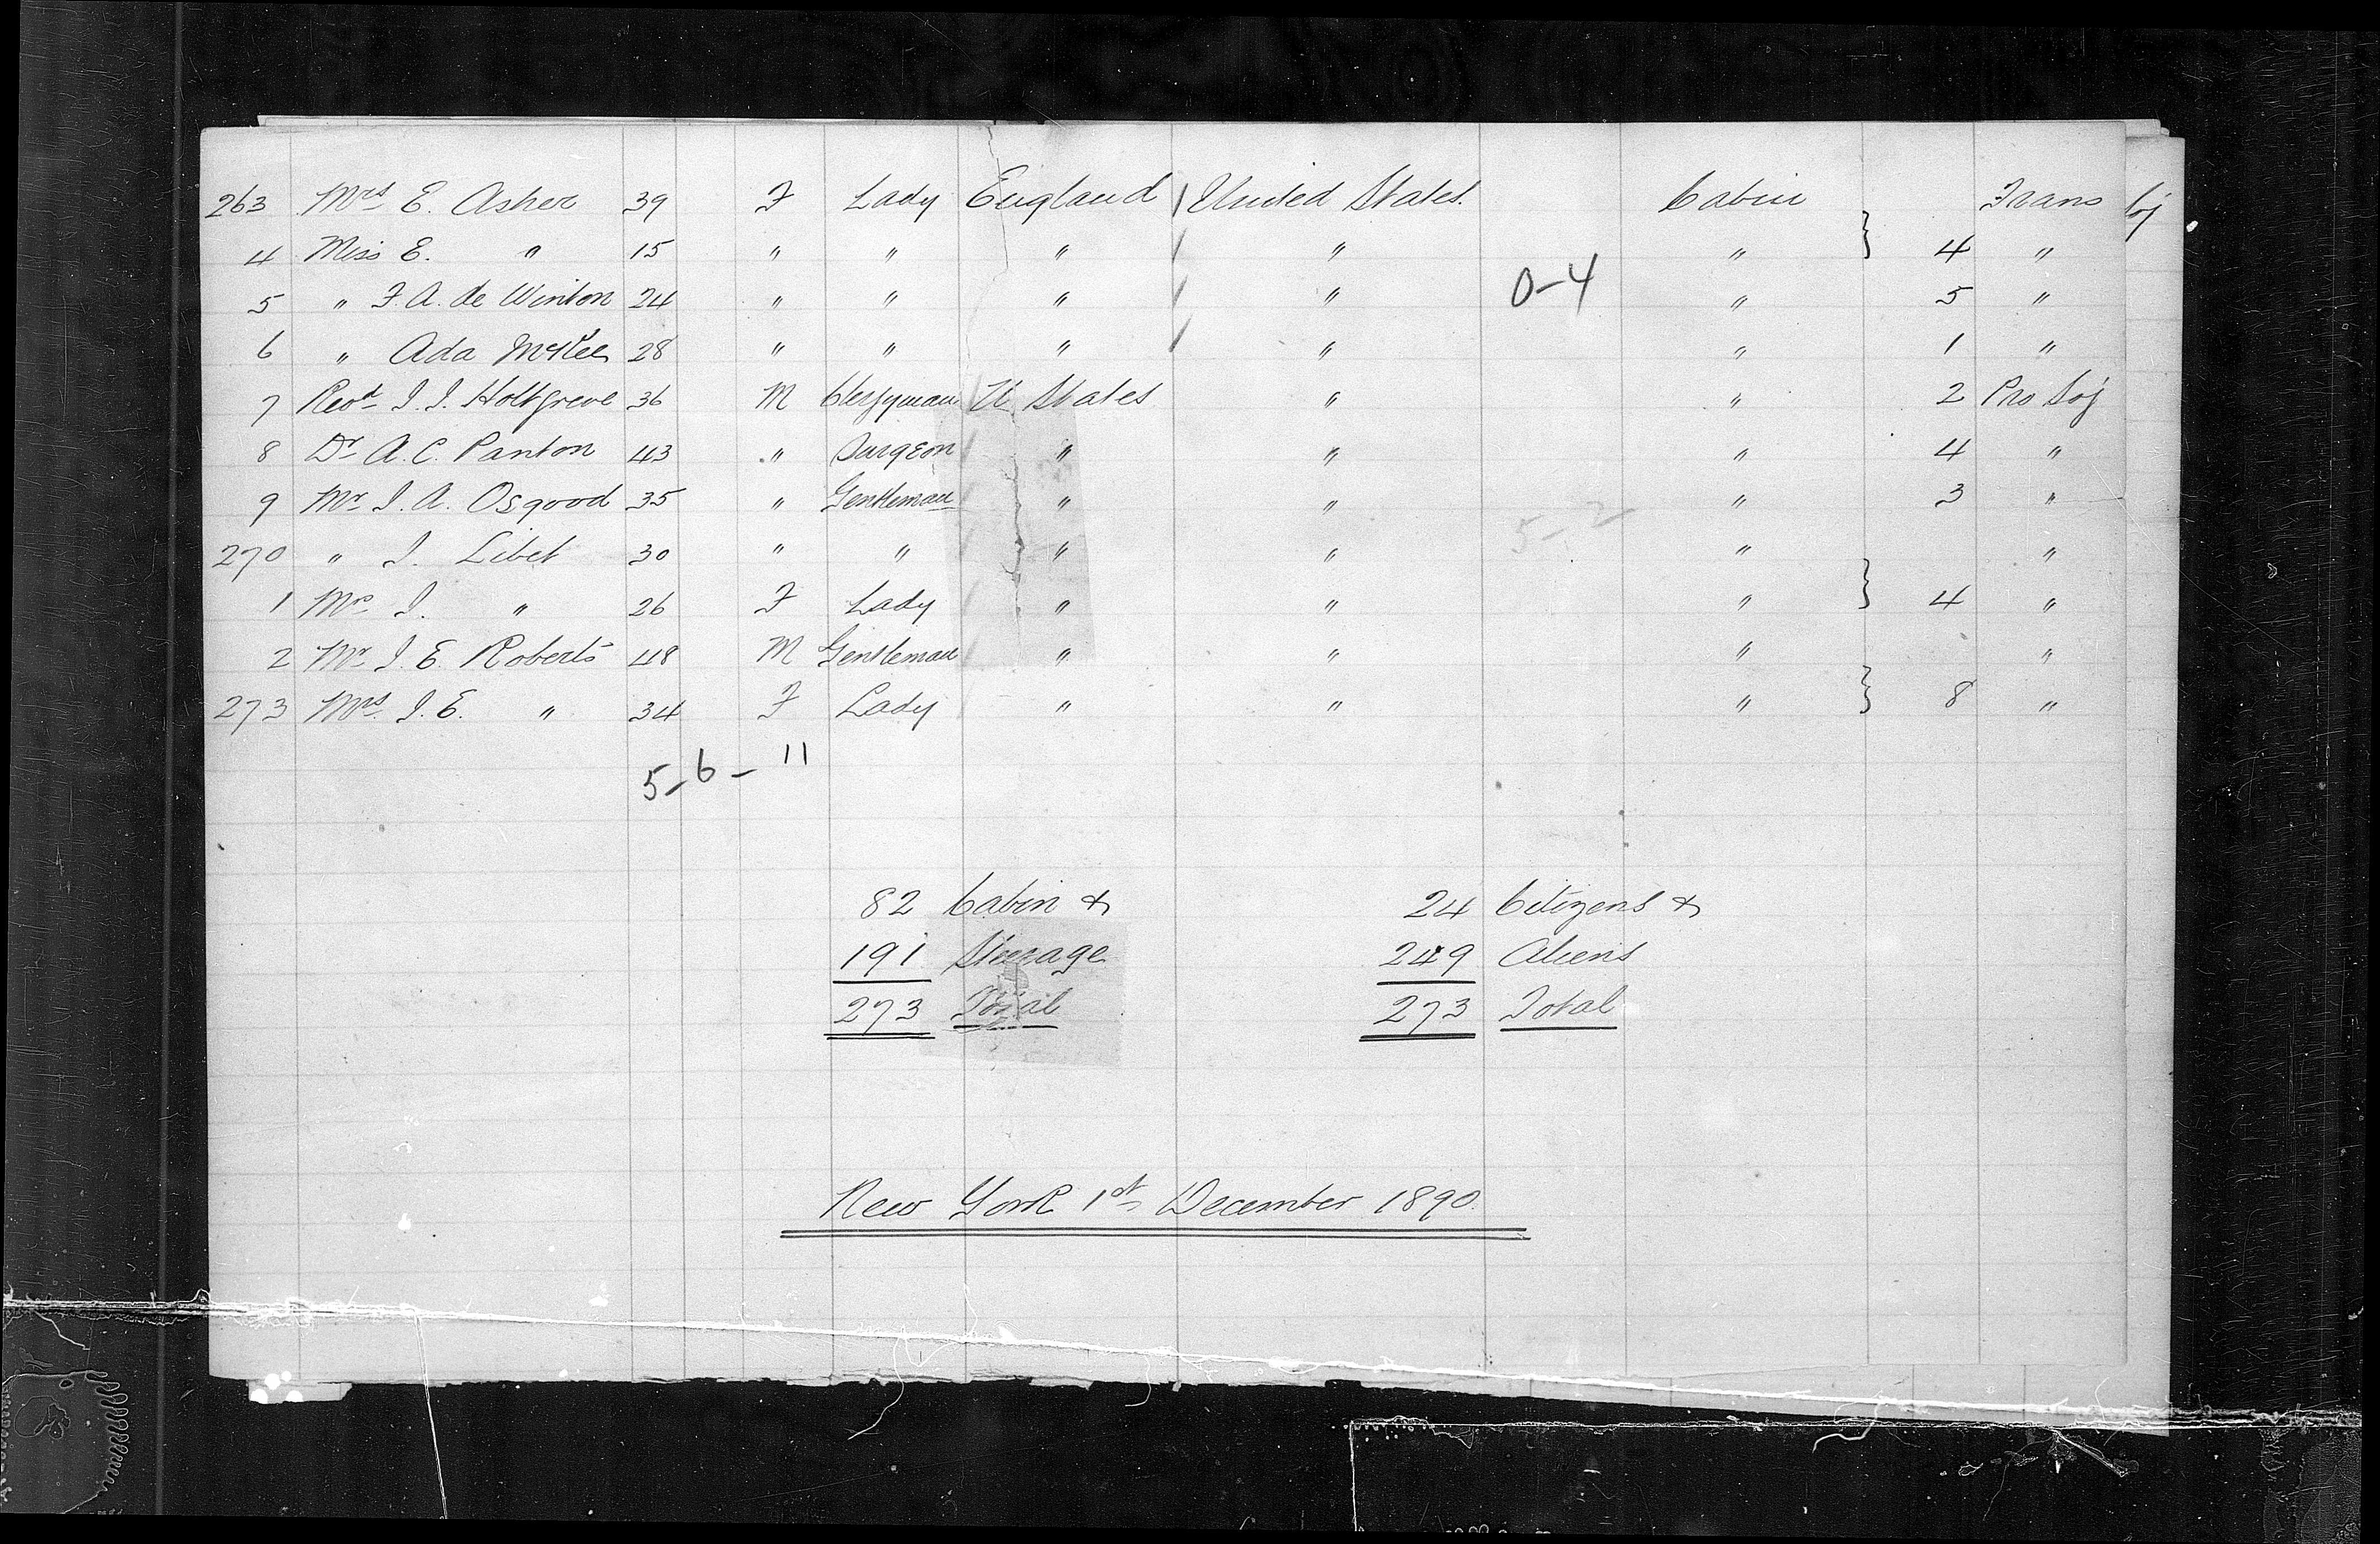 263 Mrs E. Asher 39 F Lady England United States. Cabin Trans Soj
4 Miss E. " 15 " " " " " 4 "
5 " F. A. de Winton 24 " " " " 0-4 " 5 "
6 " Ada McKee 28 " " " " " 1 "
7 Revd J. J. Holtgreve 36 M Clergyman U States " " 2 Pro Soj
8 Dr A. C. Panton 43 " Surgeon " " " 4 "
9 Mr J. A. Osgood 35 " Gentleman " " " 3 "
5-2
270 " J. Libet 30 " " " " " "
1 Mrs J. " 26 F Lady " " " 4 "
2 Mr J. E. Roberts 48 M Gentleman " " " "
273 Mrs J. E. " 34 F Lady " " " 8 "
5-6-11
82 Cabin & 24 Citizens &
191 Steerage 249 Aliens
273 Total 273 Total
New York 1st December 1890.